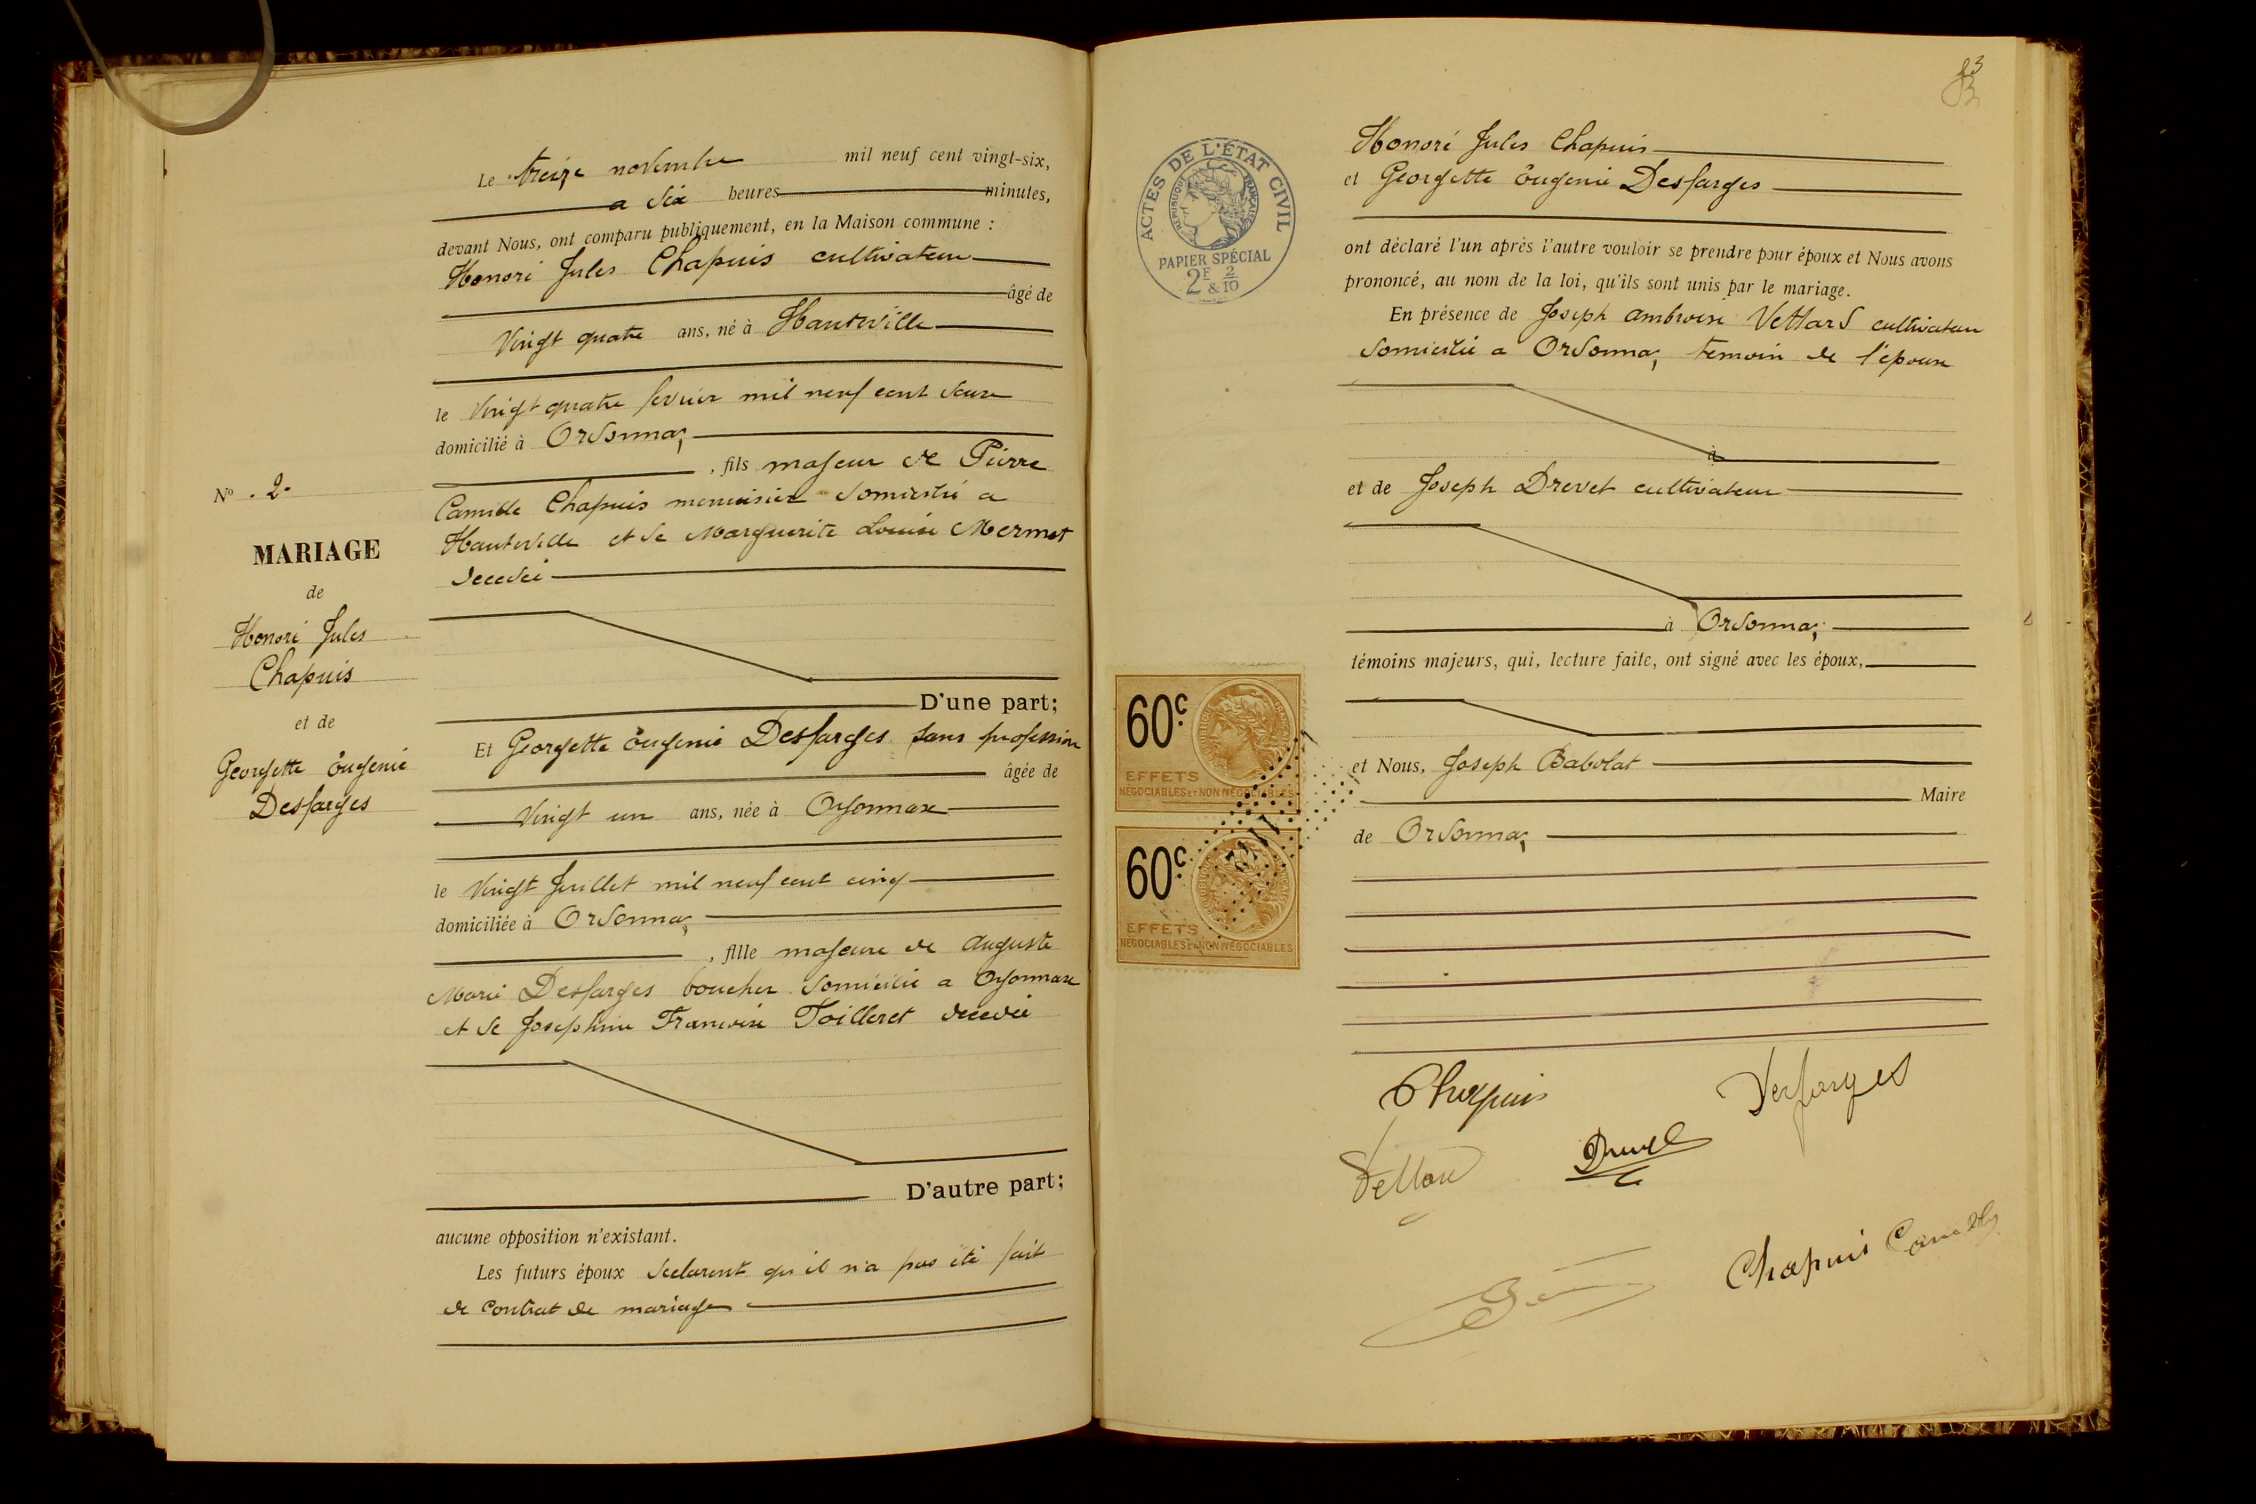 N° . 2.
MARIAGE
de
Honoré Jules
Chapuis
et de
Georgette Eugenie
Desfarges
Le treize novembre mil neuf cent vingt-six,
a six heures minutes,
devant Nous, ont comparu publiquement, en la Maison commune :
Honoré Jules Chapuis cultivateur
âgé de
Vingt quatre ans, né à Hauteville
le Vingt quatre fevrier mil neuf cent
domicilié à Ordonnaz
, fils majeur de Pierre
Camille Chapuis menuisier domicilié a
Hauteville et de Marguerite Louise Mermet
D'une part;
Et Georgette Eugenie Desfarges sans profession
âgée de
Vingt un ans, née à Oyonnax
le Vingt Juillet mil neuf cent cinq
domiciliée à Ordonnaz
, fille majeure de Auguste
Marie Desfarges boucher domicilié a Oyonnax
et de Josephine Francoise Toilleret decedée
D'autre part;
aucune opposition n'existant.
Les futurs époux declarent qu'il n'a pas été fait
de contrat de mariage
83
ACTES DE L'ÉTAT CIVIL
RÉPUBLIQUE FRANÇAISE
PAPIER SPÉCIAL
2F & 2/10
Honoré Jules Chapuis
et Georgette Eugenie Desfarges
ont déclaré l'un après l'autre vouloir se prendre pour époux et Nous avons
prononcé, au nom de la loi, qu'ils sont unis par le mariage.
En présence de Joseph Ambroise Vettard cultivateur
domicilié a Ordonnaz temoin de l'epoux
à
et de Joseph Drevet cultivateur
à Ordonnaz
témoins majeurs, qui, lecture faite, ont signé avec les époux,
et Nous, Joseph Babolat
Maire
de Ordonnaz
60c
EFFETS
NÉGOCIABLES ET NON NÉGOCIABLES
60c
EFFETS
NÉGOCIABLES ET NON NÉGOCIABLES
Chapuis
Desfarges
Vettard
Drevet
Chapuis Camille